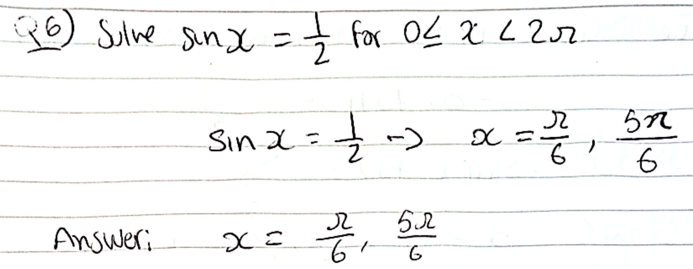 Q6) Solve sin x = 1/2 for 0 ≤ x < 2π
sin x = 1/2 → x = π/6, 5π/6
Answer: x = π/6, 5π/6